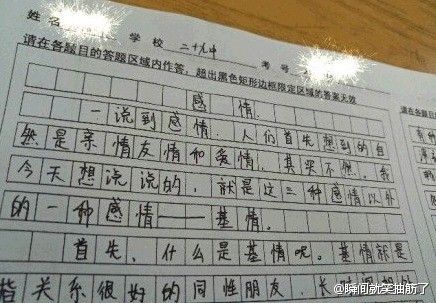 姓名 学校 二十九中 考号
请在各题目的答题区域内作答，超出黑色矩形边框限定区域的答案无效
请在各题
感情
一说到感情，人们首先想到的自
然是亲情友情和爱情，其实不然，我
今天想说说的，就是这三种感情以外
的一种感情——基情。
首先，什么是基情呢。基情就是
指关系很好的同性朋友，长时间相
@瞬间就笑抽筋了